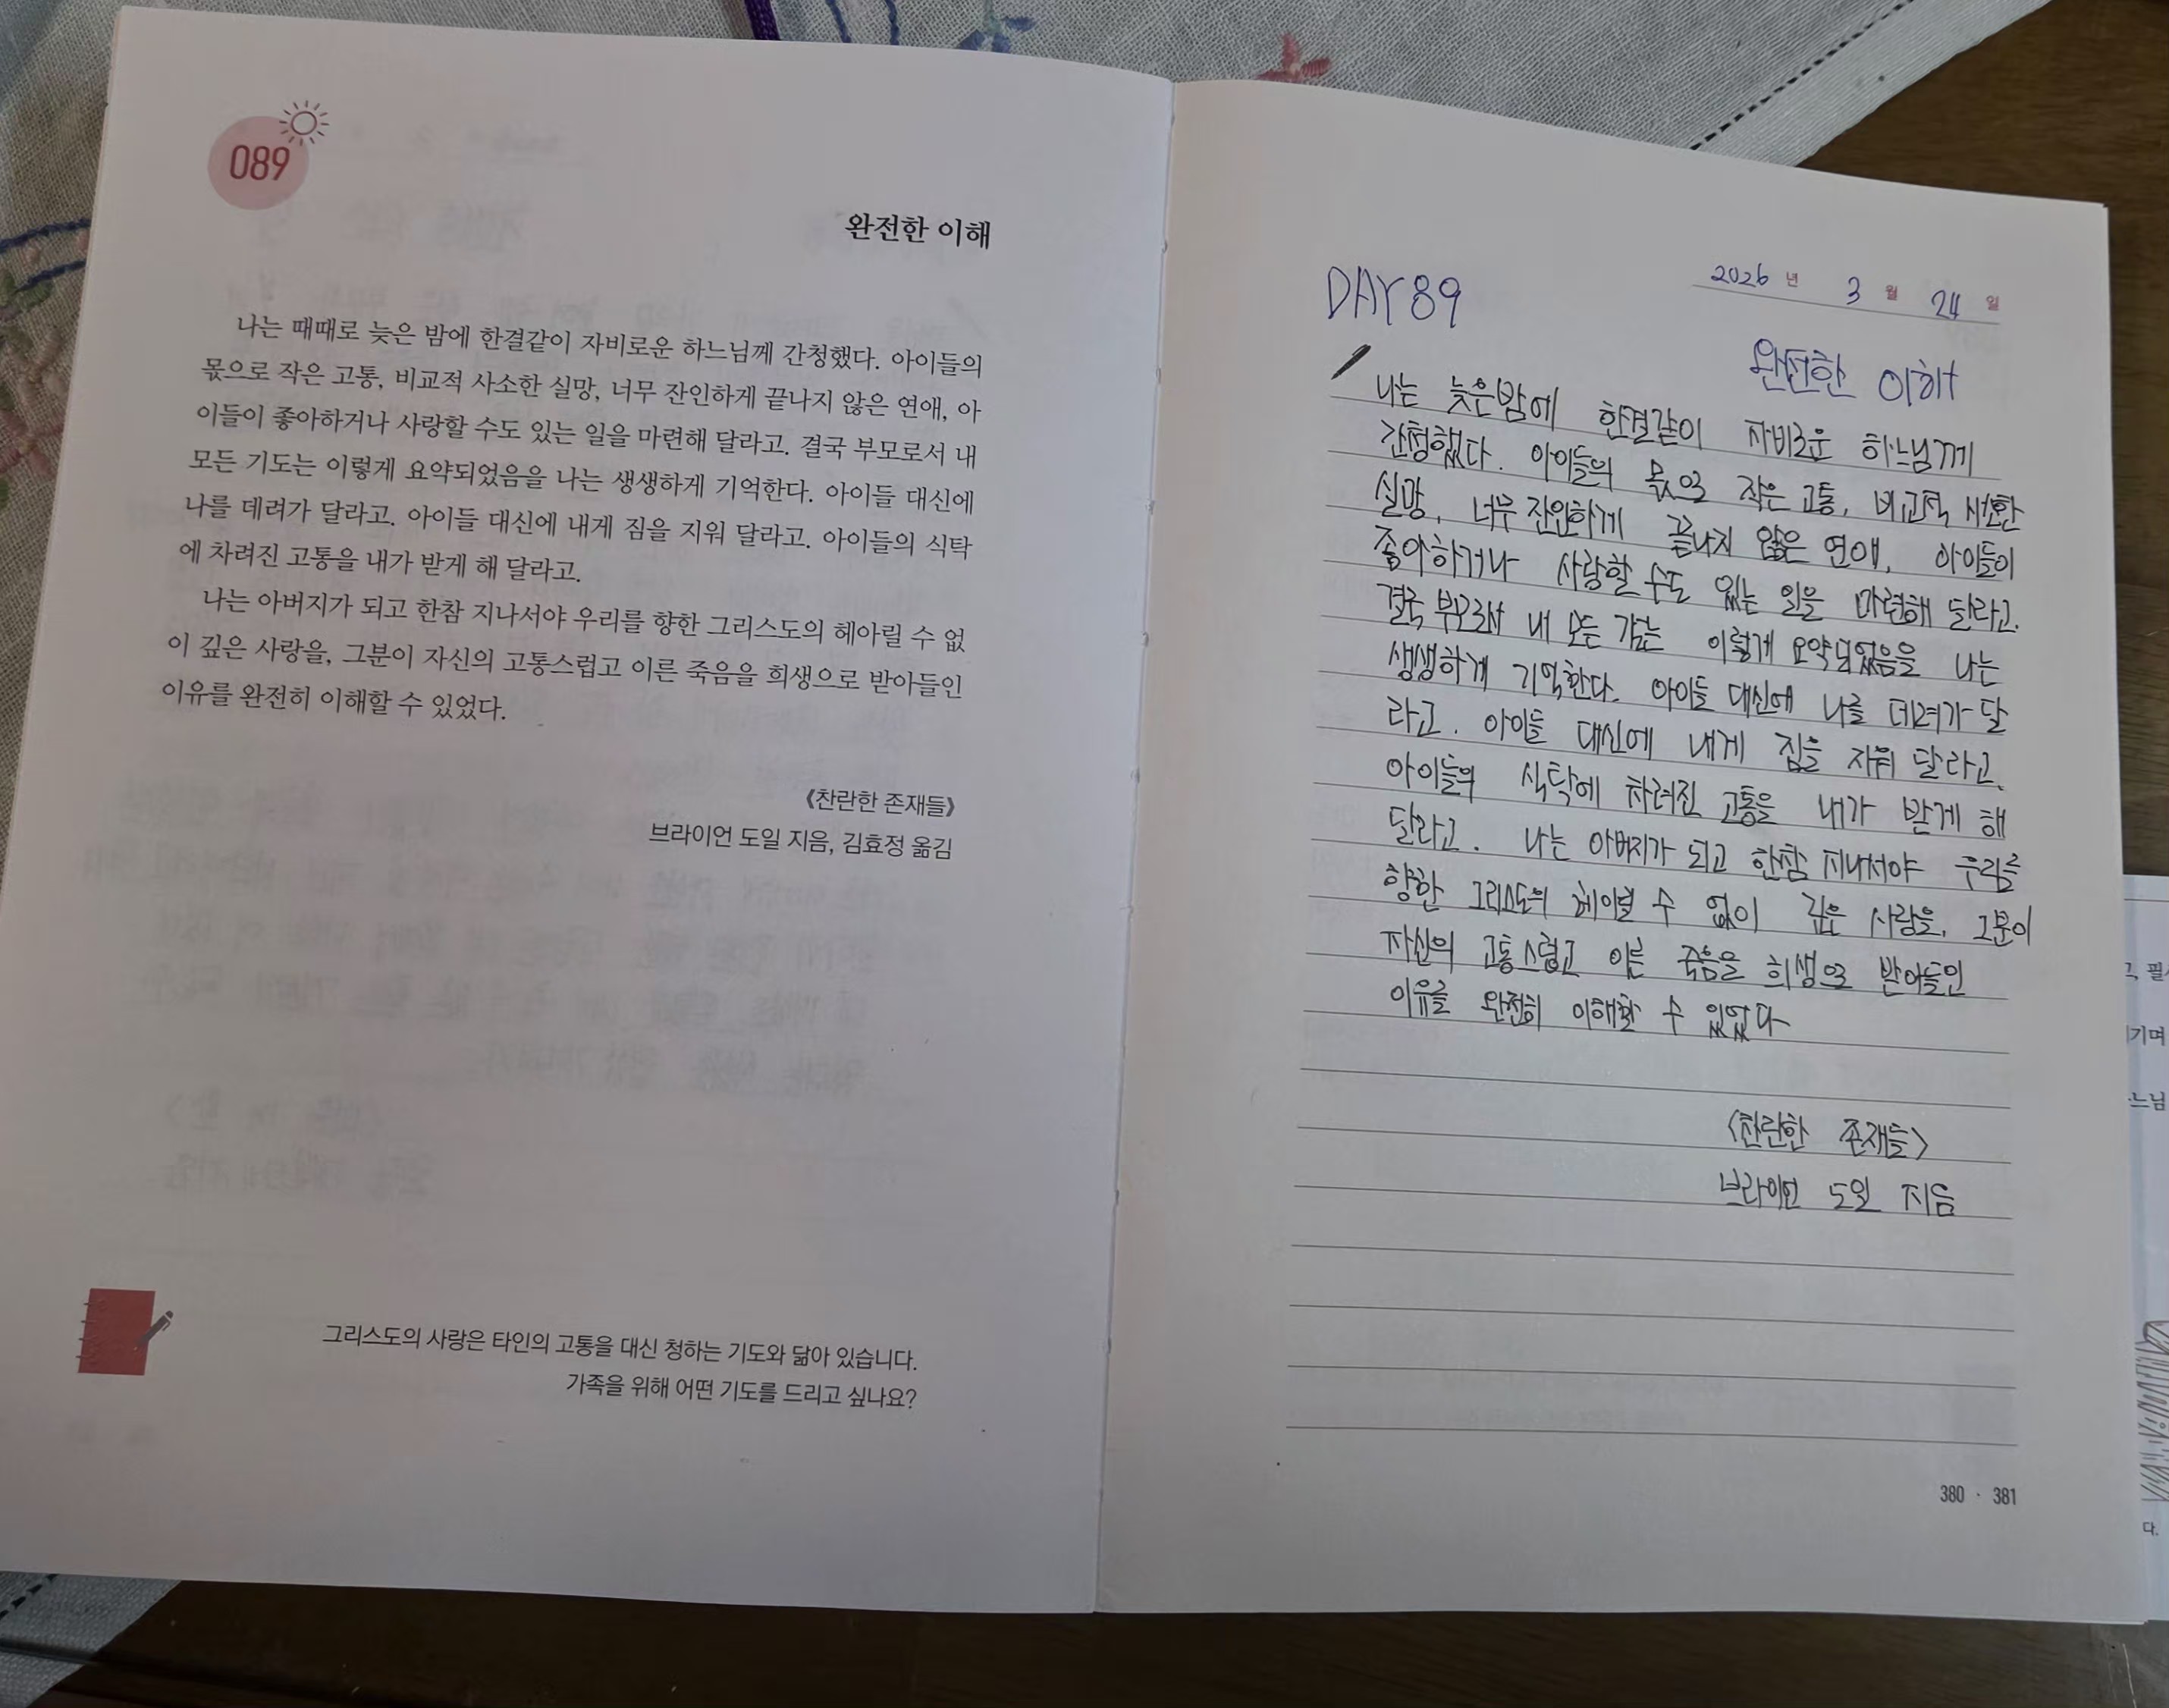 089
완전한 이해
나는 때때로 늦은 밤에 한결같이 자비로운 하느님께 간청했다. 아이들의
몫으로 작은 고통, 비교적 사소한 실망, 너무 잔인하게 끝나지 않은 연애, 아
이들이 좋아하거나 사랑할 수도 있는 일을 마련해 달라고. 결국 부모로서 내
모든 기도는 이렇게 요약되었음을 나는 생생하게 기억한다. 아이들 대신에
나를 데려가 달라고. 아이들 대신에 내게 짐을 지워 달라고. 아이들의 식탁
에 차려진 고통을 내가 받게 해 달라고.
나는 아버지가 되고 한참 지나서야 우리를 향한 그리스도의 헤아릴 수 없
이 깊은 사랑을, 그분이 자신의 고통스럽고 이른 죽음을 희생으로 받아들인
이유를 완전히 이해할 수 있었다.
《찬란한 존재들》
브라이언 도일 지음, 김효정 옮김
그리스도의 사랑은 타인의 고통을 대신 청하는 기도와 닮아 있습니다.
가족을 위해 어떤 기도를 드리고 싶나요?
2026 년 3 월 24 일
DAY 89
완전한 이해
나는 늦은밤에 한결같이 자비로운 하느님께
간청했다. 아이들의 몫으로 작은 고통, 비교적 사소한
실망, 너무 잔인하게 끝나지 않은 연애, 아이들이
좋아하거나 사랑할 수도 있는 일을 마련해 달라고.
결국 부모로서 내 모든 는 이렇게 요약되었음을 나는
생생하게 기억한다. 아이들 대신에 나를 데려가 달
라고. 아이들 대신에 내게 짐을 지워 달라고.
아이들의 식탁에 차려진 고통을 내가 받게 해
달라고. 나는 아버지가 되고 한참 지나서야 우리를
향한 그리스도의 수 없이 깊은 사랑을, 그분이
자신의 고통스럽고 이른 죽음을 희생으로 받아들인
이유를 완전히 이해할 수 있었다
<찬란한 존재들>
브라이언 도일 지음
380 · 381
기며
느님
다.